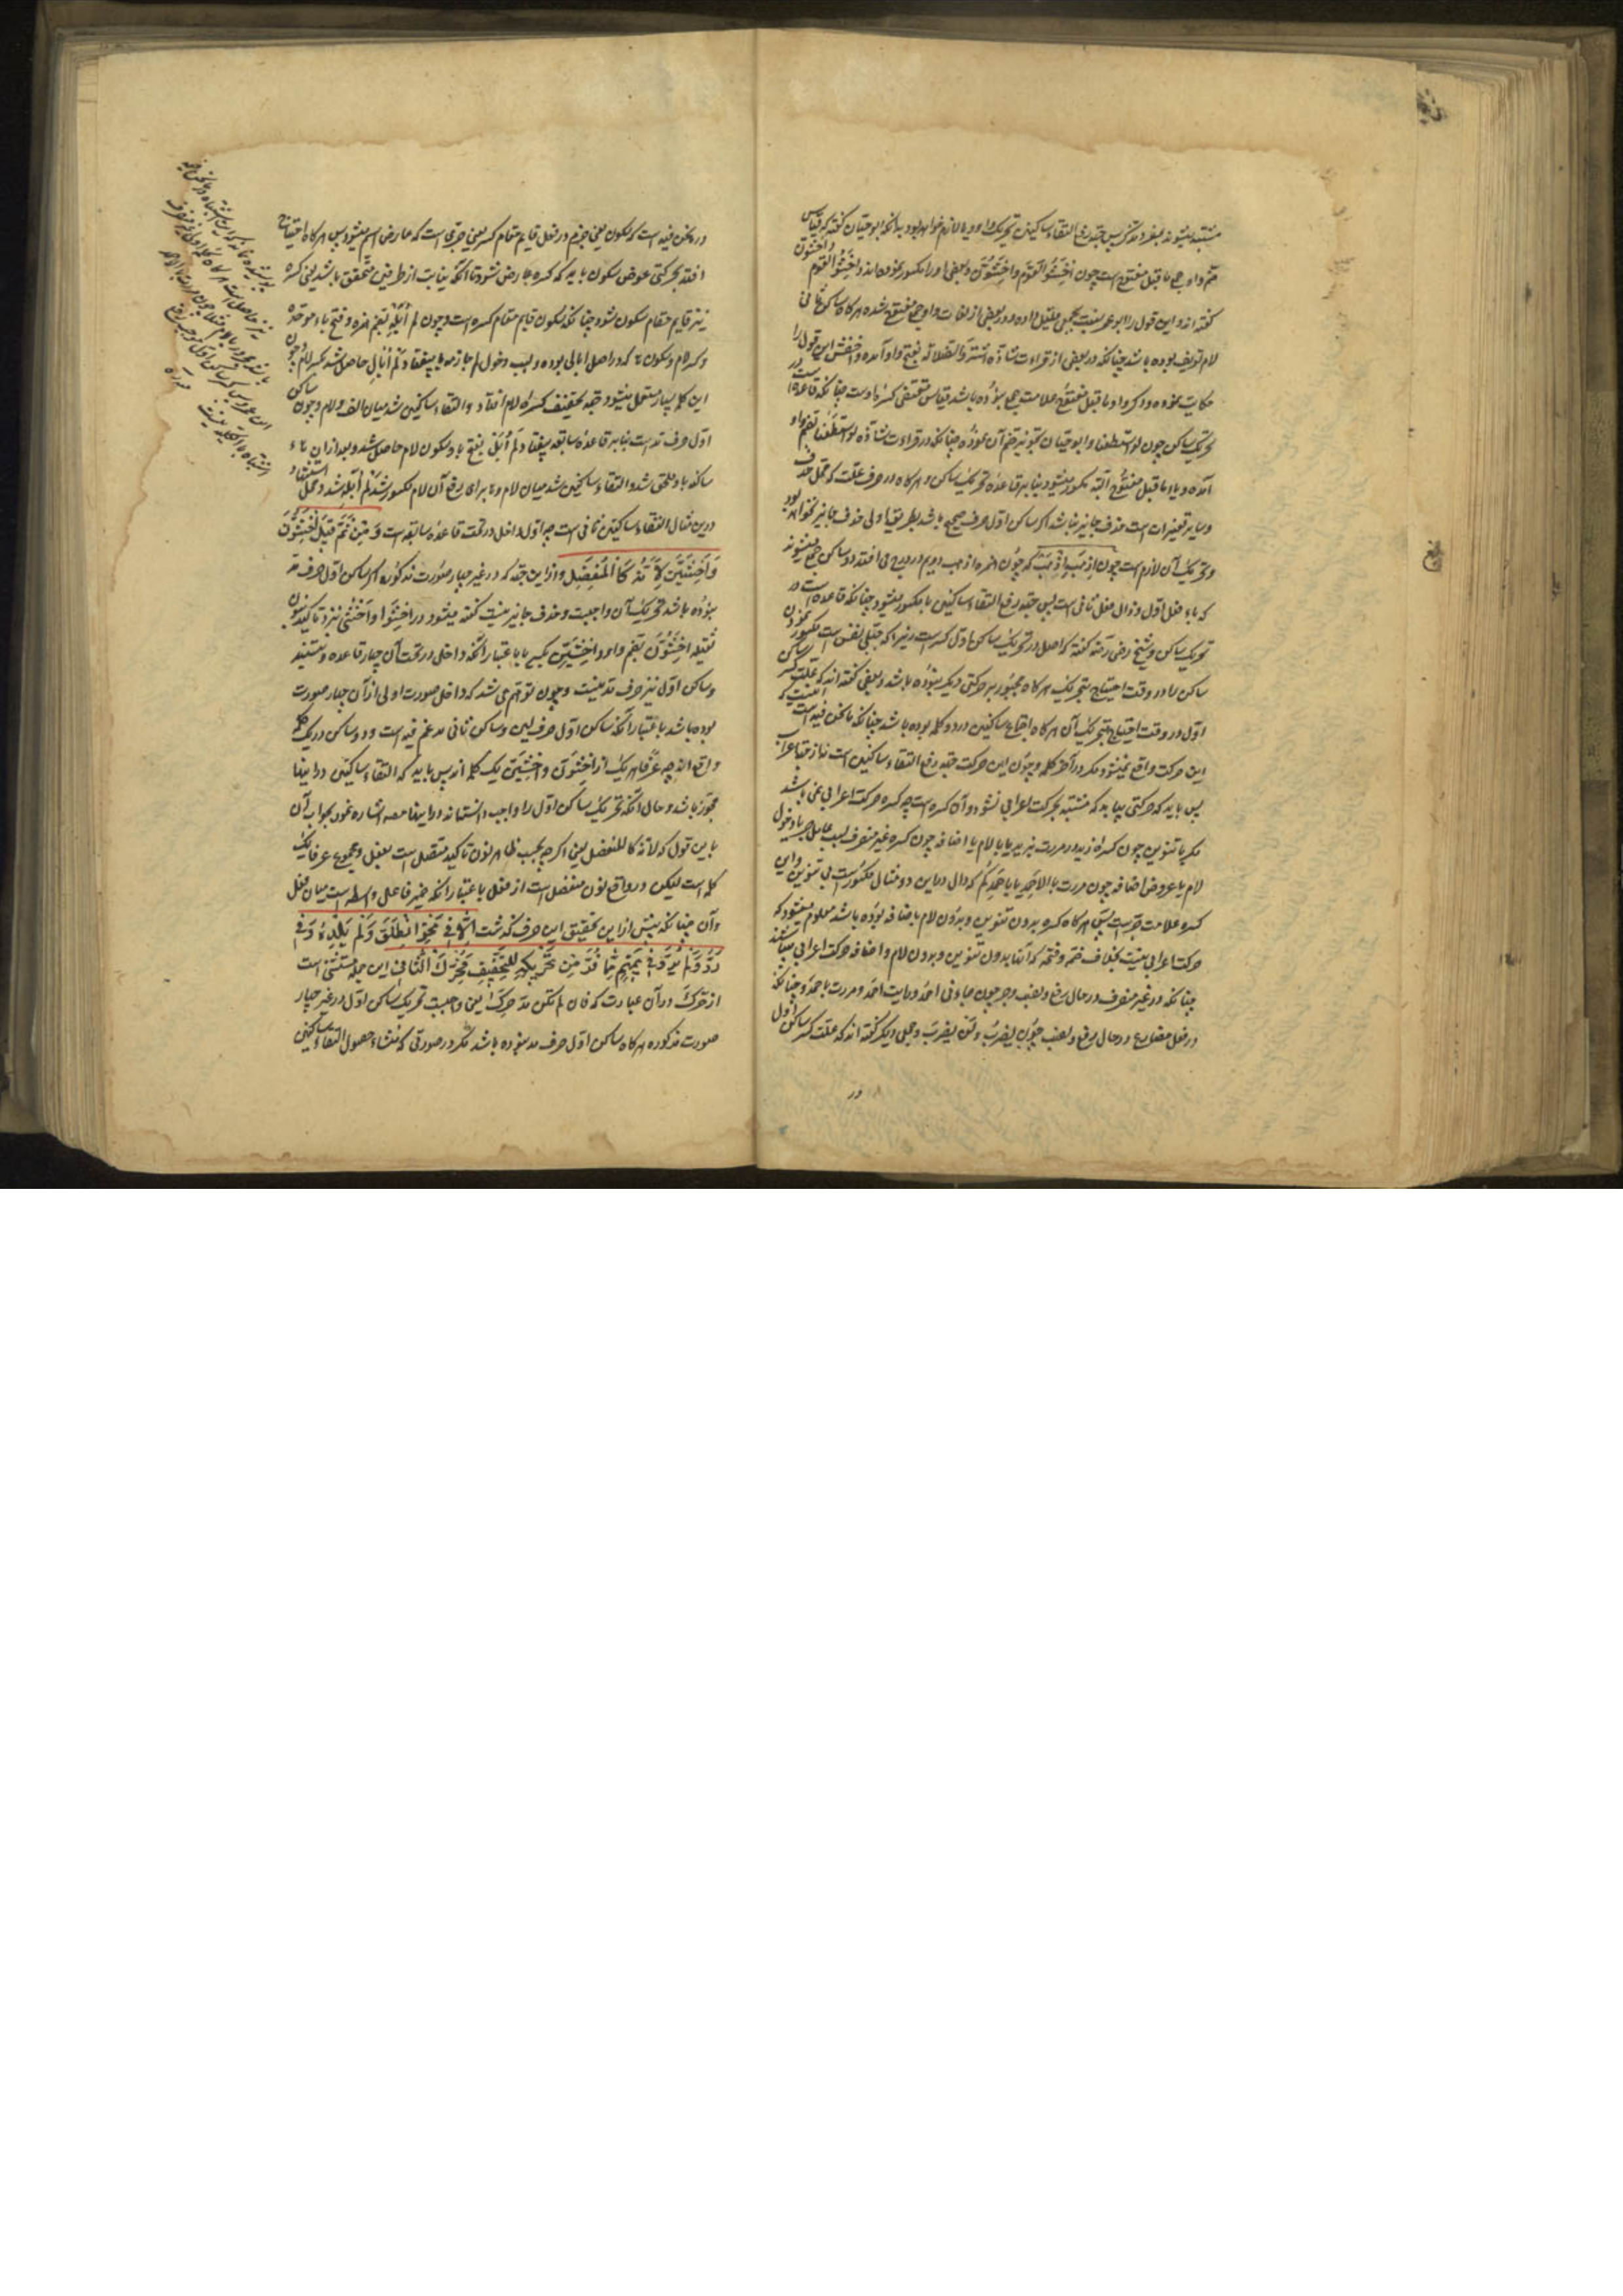 مشتبه میشوند بمفرد مذکر پس جهة رفع التقاء ساکنین تحریک واو و یا لازم خواهد بود بدانکه ابو حیان گفته که قیاس
ضم واو جمع ما قبل مفتوح است چون اخشوا القوم واخشون و بعضی او را مکسور نموده اند و اخشوا القوم
گفته اند و این قول را ابو عمر نسبت بجمعی قلیل داده و در بعضی از لغات واو جمع مفتوح شده هرگاه ساکن ثانی
لام تعریف بوده باشد چنانکه در بعضی از قراءات شاذه اشتروا الضلالة بفتح واو آمده و اخفش این قول را
حکایت نموده و دیگر واو ما قبل مفتوح علامت جمع نبوده باشد قیاس مقتضی کسره اوست چنانکه قاعده است در
تحریک ساکن چون لو استطعنا و ابو حیان تجویز ضم آن نموده چنانکه در قراءت شاذه لو استطعنا بضم واو
آمده و یاء ما قبل مفتوح البته مکسور میشود بنابر قاعده تحریک ساکن و هرگاه در حرف علت که محل حذف
و سایر تغییرات است حذف جایز نباشد اگر ساکن اول حرف صحیح باشد بطریق اولی حذف جایز نخواهد بود
و تحریک آن لازم است چون اذهب اذهب که چون همزه اذهب دویم در درج می افتد دو ساکن جمع میشوند
که باء فعل اول و ذال فعل ثانی است پس جهة رفع التقاء ساکنین با مکسور میشود چنانکه قاعده است در
تحریک ساکن و شیخ رضی رحمه الله گفته که اصل در تحریک ساکن اول کسر است زیرا که جبلی نفس است مکسور نمودن
ساکن را در وقت احتیاج بتحریک هرگاه مجبور بر حرکتی دیگر نبوده باشد و بعضی گفته اند که علت کسر ساکن
اول در وقت احتیاج بتحریک آن هرگاه اجتماع ساکنین در دو کلمه بوده باشد چنانکه ما نحن فیه است اینست که
این حرکت واقع نمیشود مگر در آخر کلمه و چون این حرکت جهة رفع التقاء ساکنین است نه از جهة اعراب
پس باید که حرکتی بیاید که مشتبه بحرکت اعرابی نشود و آن کسره است چه کسره حرکت اعرابی نمی باشد
مگر با تنوین چون کسره زید در مررت بزید یا با لام یا اضافه چون کسره غیر منصرف بسبب عامل جر با دخول
لام یا عروض اضافه چون مررت بالاحمد یا باحمدکم که دال در این دو مثال مکسور است بی تنوین و این
کسره علامت جر است پس هرگاه کسره بدون تنوین و بدون لام یا اضافه بوده باشد معلوم میشود که
حرکت اعرابی نیست بخلاف ضمه و فتحه که آنها بدون تنوین و بدون لام و اضافه حرکت اعرابی میباشند
چنانکه در غیر منصرف در حال رفع و نصب و جر چون جاءنی احمد و رایت احمد و مررت باحمد و چنانکه
در فعل مضارع در حال رفع و نصب چون یضرب و لن یضرب و جمعی دیگر گفته اند که علت کسر ساکن اول
در
در ما نحن فیه است که سکون یعنی جزم در فعل قایم مقام کسر یعنی جری است که عارض اسم میشود پس هرگاه احتیاج
افتد بحرکتی عوض سکون باید که کسره عارض شود تا آنکه نیابت از طرفین متحقق باشد یعنی کسره
نیز قایم مقام سکون شود چنانکه سکون قایم مقام کسره است و چون لم ابله بضم همزه و فتح باء موحده
و کسر لام و سکون هاء که در اصل ابالی بوده و بسبب دخول لم جازمه یا بیفتاد و لم ابال حاصل شد بکسر لام و چون
این کلمه بسیار مستعمل میشود جهة تخفیف کسره لام افتاد و التقاء ساکنین شد میان الف و لام و چون ساکن
اول حرف مد است بنابر قاعده سابقه بیفتاد و لم ابل بفتح باء و سکون لام حاصل شد و بعد از آن هاء
ساکنه باو ملحق شد و التقاء ساکنین شد میان لام و هاء برای رفع آن لام مکسور شد لم ابله شد و محل استشهاد
درین مثال التقاء ساکنین ثانی است چه اول داخل در تحت قاعده سابقه است وَمِنْ ثَمَّ قِيلَ اخْشَوُنَّ
وَاخْشَيِنَّ لِأَنَّهُ كَالْمُنْفَصِلِ و از این جهة که در غیر چهار صورت مذکوره اگر ساکن اول حرف مد
نبوده باشد تحریک آن واجبست و حذف جایز نیست گفته میشود در اخشوا و اخشی نزد تاکید بنون
ثقیله اخشون بضم واو و اخشین بکسر یا با اعتبار آنکه داخل در تحت آن چهار قاعده نیستند
و ساکن اول نیز حرف مد نیست و چون توهم می شد که داخل صورت اولی از آن چهار صورت
بوده باشد با اعتبار آنکه ساکن اول حرف لین و ساکن ثانی مدغم فیه است و دو ساکن در یک کلمه
واقع اند چه عرفا هر یک از اخشون و اخشین یک کلمه اند پس باید که التقاء ساکنین در اینها
مجوز باشد و حال آنکه تحریک ساکن اول را واجب دانسته اند در اینها مصه اشاره نمود بجواب آن
باین قول که لانه کالمنفصل یعنی اگرچه بحسب ظاهر نون تاکید متصل است بفعل و مجموع عرفا یک
کلمه است لیکن در واقع نون منفصل است از فعل با اعتبار آنکه ضمیر فاعل واسطه است میان فعل
و آن چنانکه پیش ازین تحقیق این حرف گذشت اِلّا فِي نَحْوِ انْطَلْقَ وَلَمْ يَلْدَهُ وَفِي
رُدَّ وَلَمْ يَرُدَّ فِي تَمِيمٍ مِمَّا فُرَّ مِنْ تَحْرِيكِهِ لِلتَّخْفِيفِ فَحُرِّكَ الثَّانِي این جمله مستثنی است
از حرک در آن عبارت که فان لم تکن مدة حرک یعنی واجبست تحریک ساکن اول در غیر چهار
صورت مذکوره هرگاه ساکن اول حرف مد نبوده باشد مگر در صورتی که منشاء حصول التقاء ساکنین